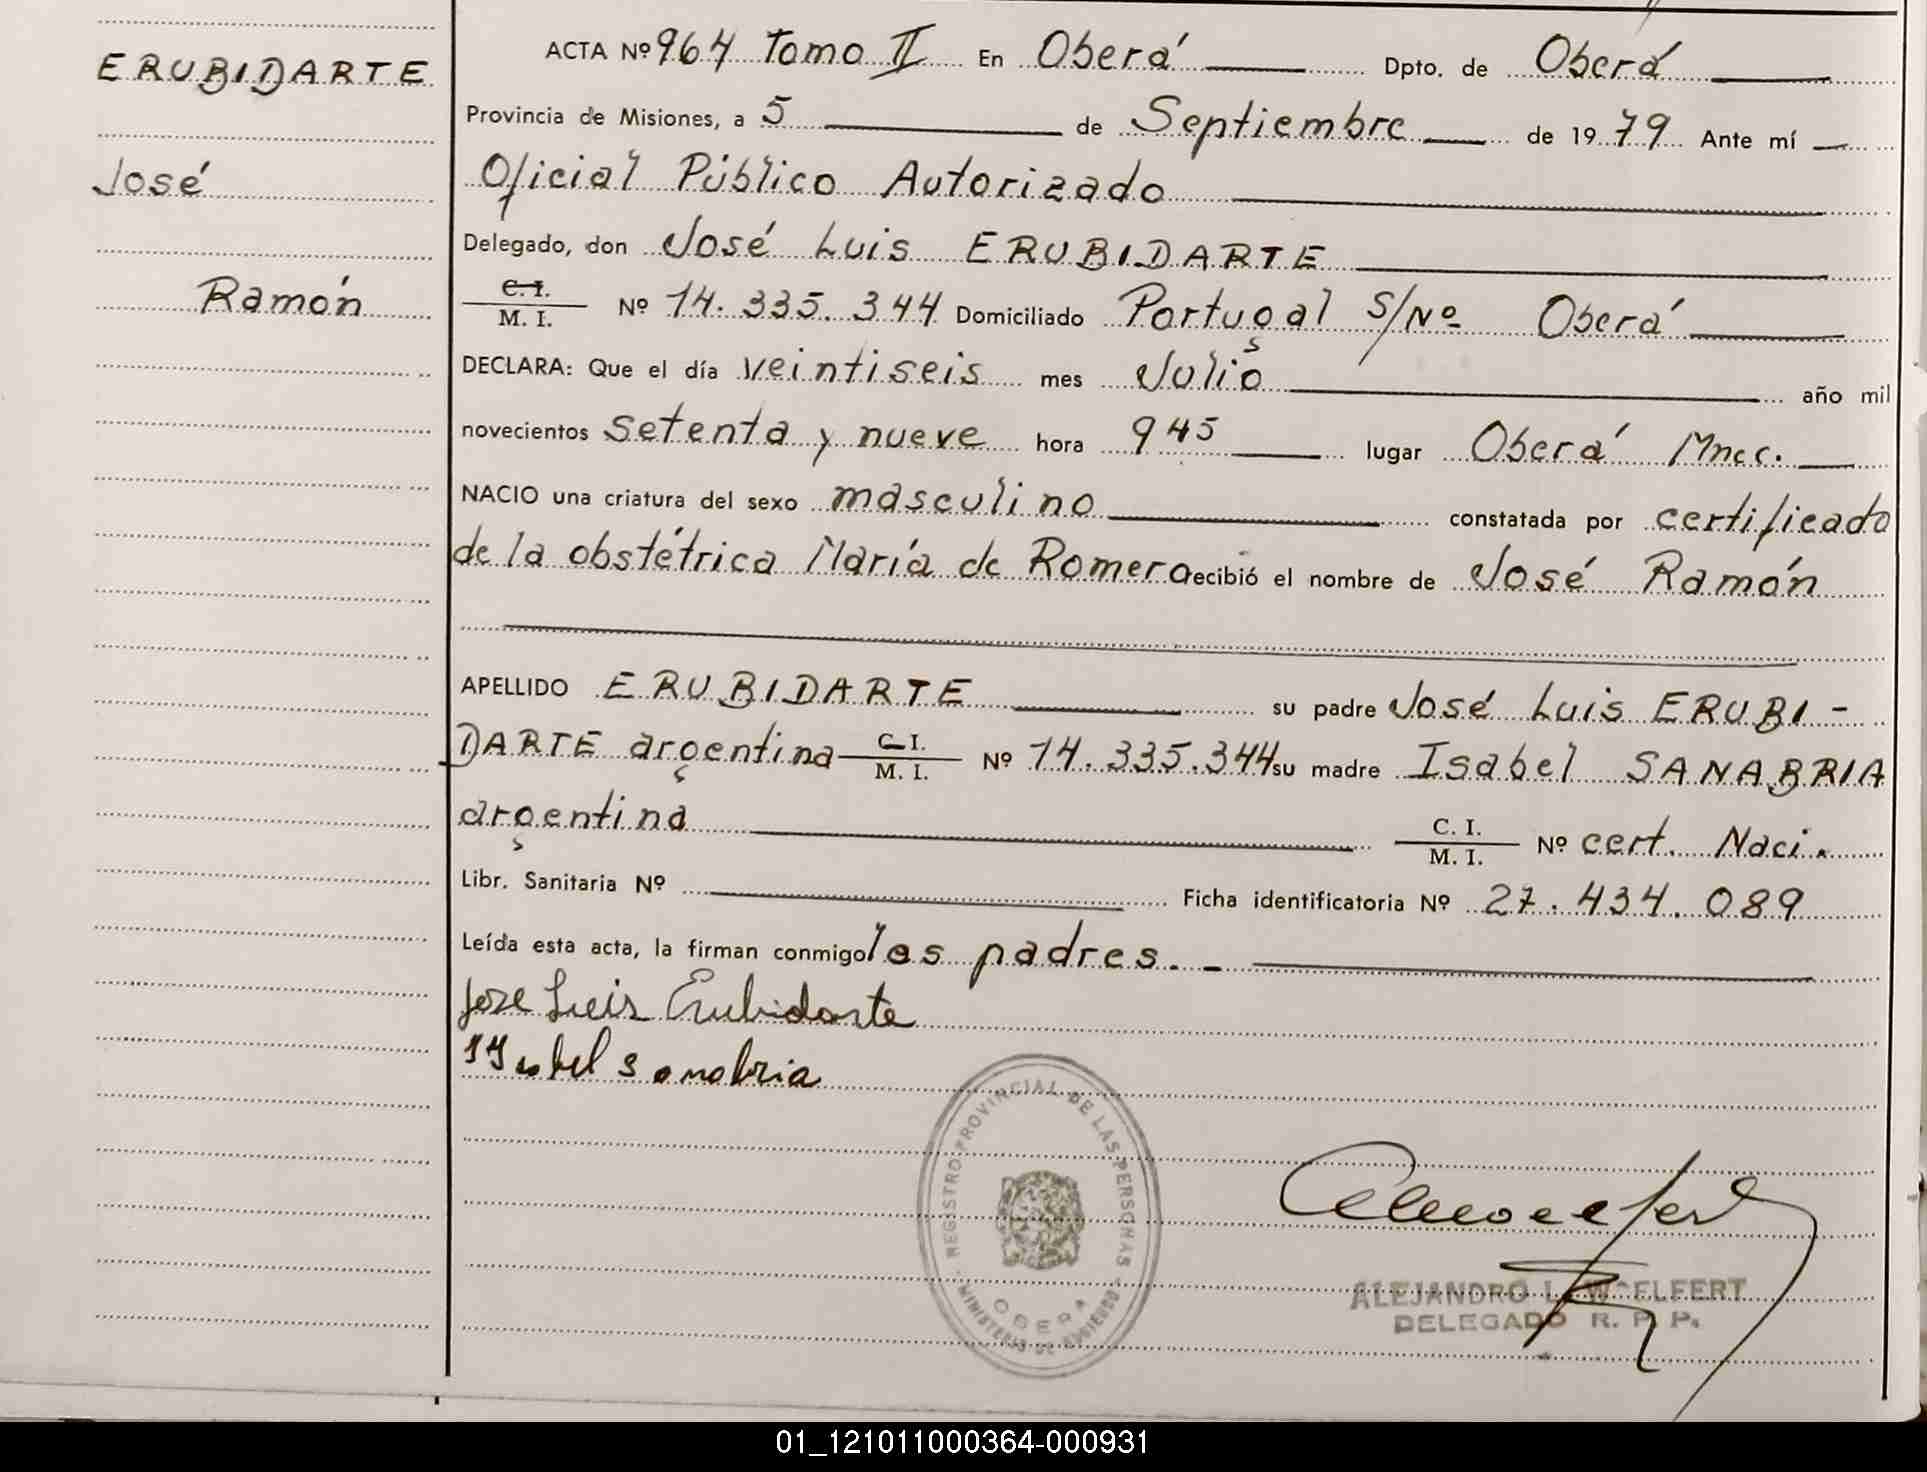 ERUBIDARTE
José
Ramón
ACTA Nº 964 Tomo II En Oberá Dpto. de Oberá
Provincia de Misiones, a 5 de Septiembre de 1979 Ante mí
Oficial Público Autorizado
Delegado, don José Luis ERUBIDARTE
C. I.
M. I. Nº 14.335.344 Domiciliado Portugal S/Nº Oberá
DECLARA: Que el día veintiseis mes Julio año mil
novecientos setenta y nueve hora 9 45 lugar Oberá Mnes.
NACIO una criatura del sexo masculino constatada por certificado
de la obstétrica María de Romero ecibió el nombre de José Ramón
APELLIDO ERUBIDARTE su padre José Luis ERUBI-
DARTE argentina C. I. M. I. Nº 14.335.344 su madre Isabel SANABRIA
argentina C. I. M. I. Nº cert. Naci.
Libr. Sanitaria Nº Ficha identificatoria Nº 27.434.089
Leída esta acta, la firman conmigo los padres.-
Jose Luis Erubidarte
Ysabel Sanabria
REGISTRO PROVINCIAL DE LAS PERSONAS
MINISTERIO DE GOBIERNO
OBERA
ALEJANDRO L. WOELFERT
DELEGADO R. P. P.
01_121011000364-000931